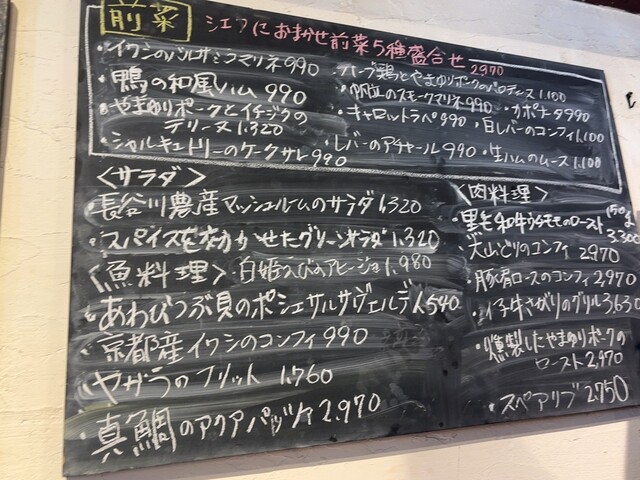 前菜
シェフにおまかせ前菜5種盛合せ 2,970
・イワシのバルサミコマリネ 990
・鴨の和風ハム 990
・やまゆりポークとイチジクの
テリーヌ 1,320
・シャルキュトリーのケークサレ 990
・ハーブ鶏とやまゆりポークのバロティーヌ 1,100
・帆立のスモークマリネ 990
・カポナータ 990
・キャロットラペ 990
・白レバーのコンフィ 1,100
・レバーのアチャール 990
・生ハムのムース 1,100
<サラダ>
・長谷川農産マッシュルームのサラダ 1,320
・スパイスを効かせたグリーンサラダ 1,320
<魚料理>
・白姫えびのアヒージョ 1,980
・あわびつぶ貝のポシェサルサヴェルデ 1,540
・京都産イワシのコンフィ 990
・ヤガラのフリット 1,760
・真鯛のアクアパッツァ 2,970
<肉料理>
・黒毛和牛うちもものロースト 150g 3,300
・大山どりのコンフィ 2,970
・豚肩ロースのコンフィ 2,970
・仔牛さがりのグリル 3,630
・燻製したやまゆりポークの
ロースト 2,970
・スペアリブ 2,750